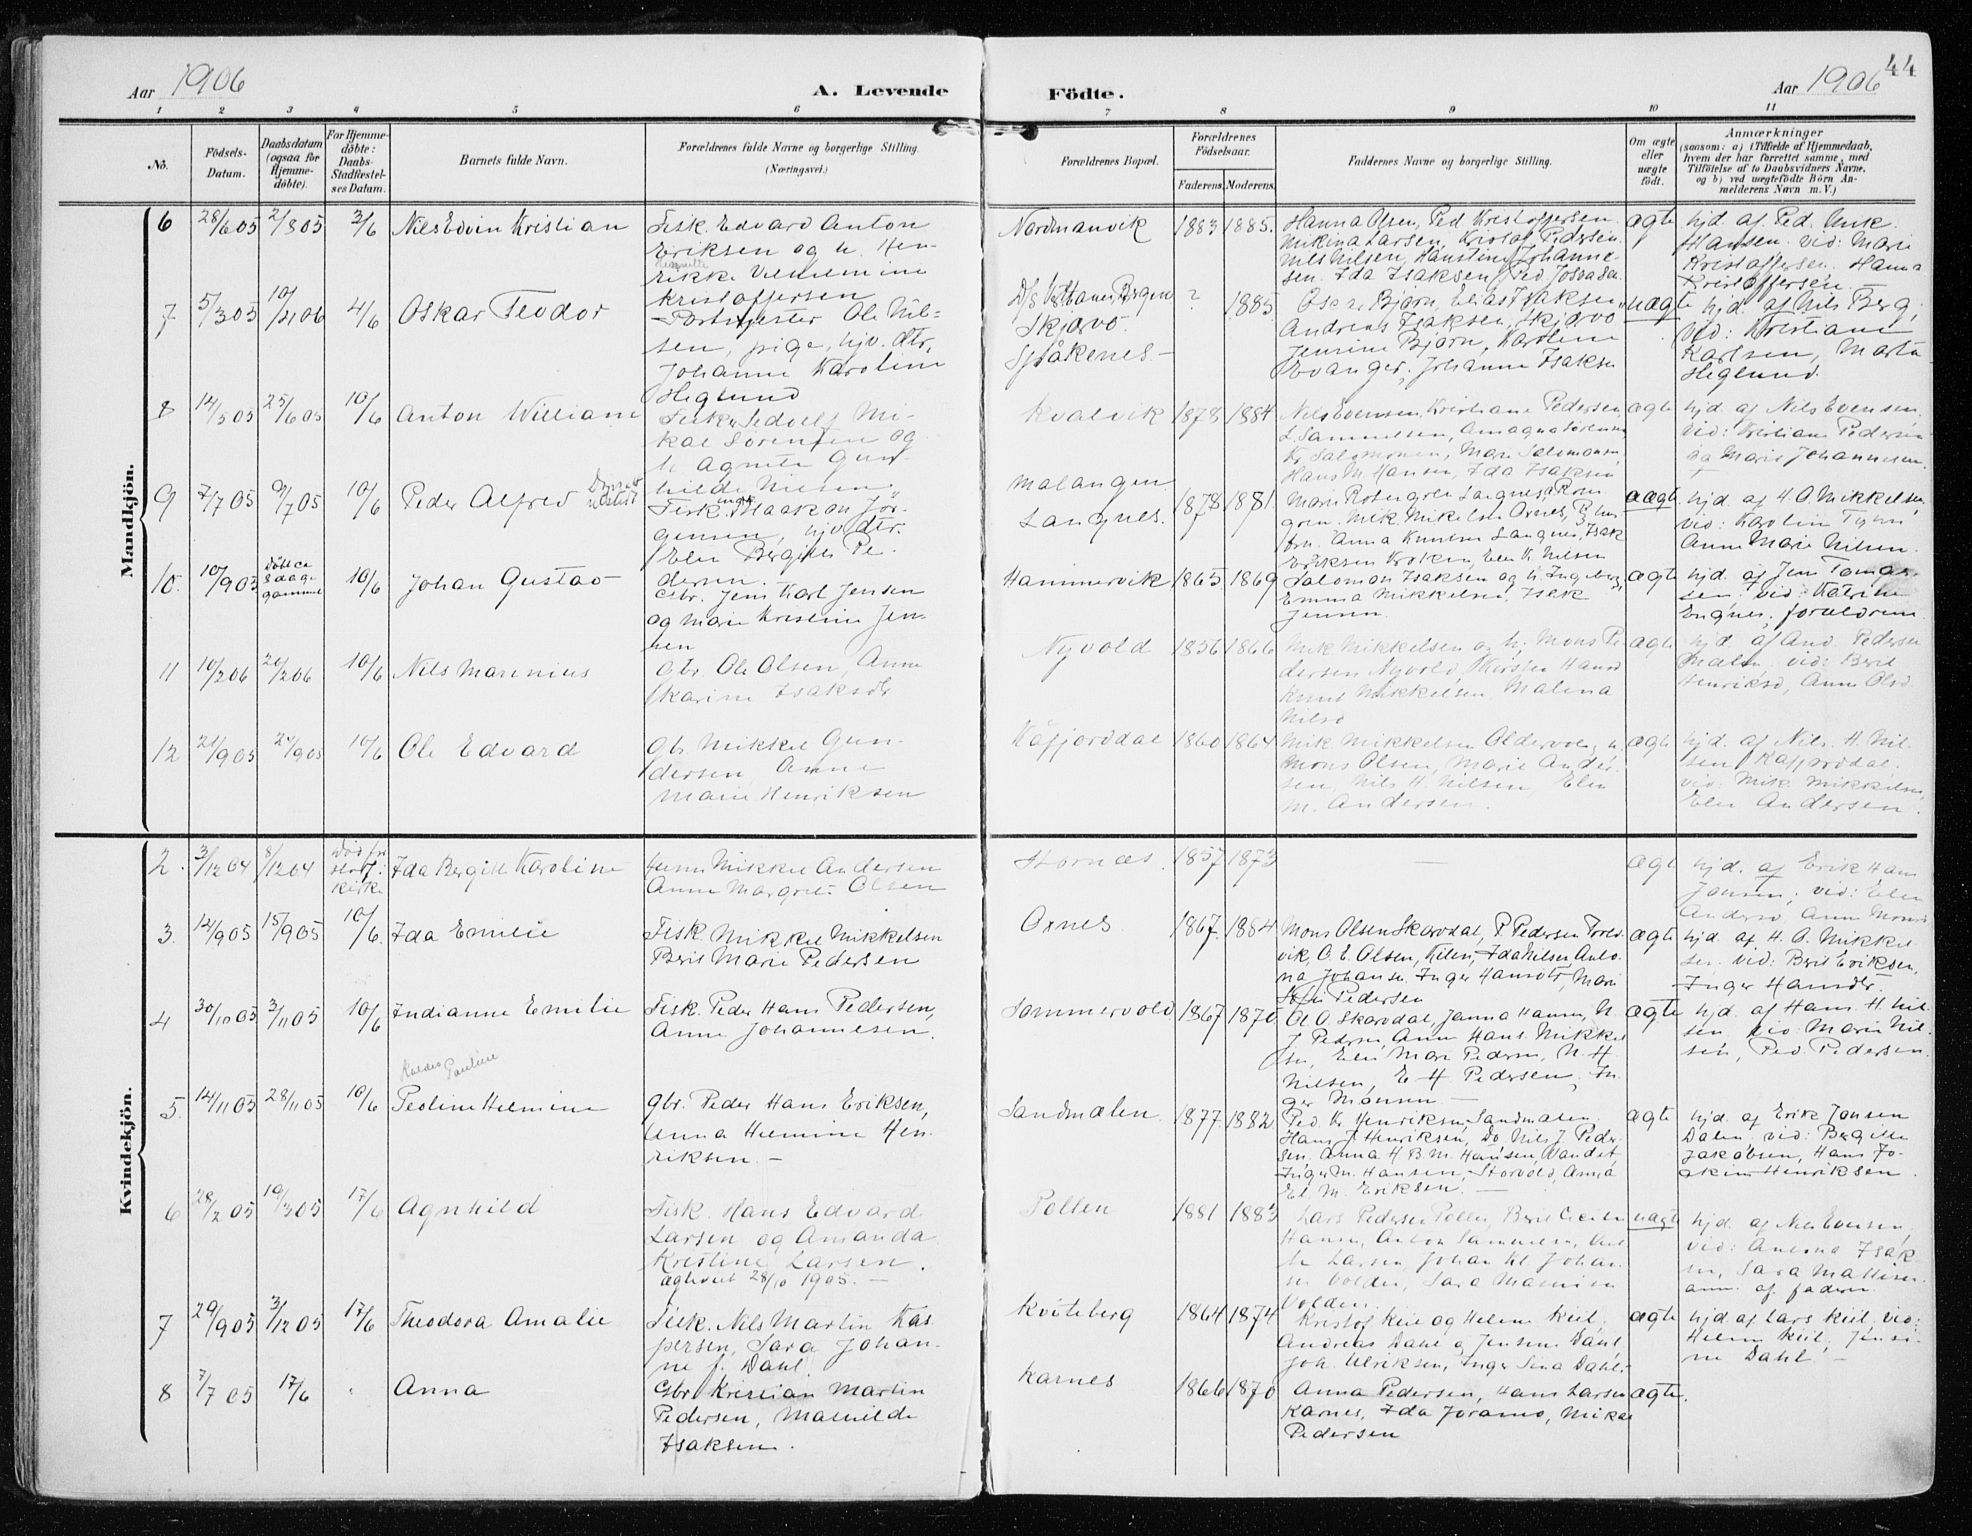 44
Aar 1906
A. Levende
Födte.
Aar 1906
1 2 3 4 5 6 7 8 9 10 11
No.
Födsels-Datum.
Daabsdatum (ogsaa for Hjemme-döbte).
For Hjemme-döbte: Daabs-Stadfæstel-ses Datum.
Barnets fulde Navn.
Forældrenes fulde Navne og borgerlige Stilling.
(Næringsvei.)
Forældrenes Bopæl.
Forældrenes Födselsaar.
Faderens. Moderens.
Faddernes Navne og borgerlige Stilling.
Om ægte eller uægte födt.
Anmærkninger
(saasom: a) i Tilfælde af Hjemmedaab,
hvem der har forrettet samme, med
Tilföielse af to Daabsvidners Navne,
og b) ved uægtefödte Börn An-
melderens Navn m. V.)
Mandkjön.
6 28/6 05 2/8 05 3/6 Nils Edvin Kristian
Fisk. Edvard Anton
Eriksen og h. Hen-
rikke
Kristoffersen
Nordmanvik 1883 1885.
Hanna Olsen, Ped. Kristoffersen
Mikina Larsen, Kristof. Pedersen
Nils Nilsen, Hanstine Johanne-
sen. Ida Isaksen, Ped. Josvasen
ægte
hjd. af Ped. Mik.
Hansen. vid: Marie
Kristoffersen. Hanna
Kristoffersen.
7 5/3 05 10/4 06 4/6 Oskar Teodor
Ole Nil-
sen, pige, hjv. dtr.
Johanne Karoline
Heglund
Skjærvö.
Spåkenes.-
? 1885
Bjørn, Elias Isaksen
Andreas Isaksen, Skjærvö
Jensine Bjørn, Karoline
Evanger, Johanne Isaksen
uægte
hjd. af Nils Berg,
vid: Kristiane
Karlsen, Marta
Heglund.
8 14/5 05 25/6 05 10/6 Anton William
Fisk. Sedolf Mi-
kal Sörensen og
h. Agnete Gun-
hilde Nilsen
Kvalvik 1878 1884
Nils Evensen, Kristiane Pedersen,
L. Samuelsen,
Kr. Salomonsen, Marie Salomonsen
Hans M. Hansen, Ida Isaksen
ægte
hjd. af Nils Evensen.
vid: Kristiane Pedersen
og Marie Johannesen.
9 7/7 05 9/7 05 10/6 Peder Alfred
Fisk. ungk. Haakon Jör-
gensen, hjv. dtr.
Elen Bergitte Pe-
dersen.
Malangen
Langnes. 1878 1881.
uægte
hjd. af H. O. Mikkelsen
Anne Marie Nilsen.
10. 10/9 03 Döbt ca 8 dage gammel 10/6 Johan Gustav
Gbr. Jens Karl Jensen
og Marie Kristine Jen-
sen
Hammervik 1865 1869
Salomon Isaksen og h. Ingeborg,
Emma Mikkelsen, Isak
Jensen.
ægte
hjd. af Jens Tomas-
sen. vid: Katrine
Engnes, forældrene
11 10/2 06 20/2 06 10/6 Nils Marenius
Gbr. Ole Olsen, Anne
Karine Isaksdr
Nyvold 1856 1866
Mik Mikkelsen og h, Mons Pe-
dersen Nyvold, Kirsten Hansd
Knut Mikkelsen, Malena
Nilsd
ægte
hjd. af And. Pedersen
Malen. vid: Beril
Henriksd, Anne Olsd.
12 21/9 05 24/9 05 10/6 Ole Edvard
Gbr. Mikkel Gun-
dersen, Anne
Marie Henriksen
Kåfjorddal 1860 1864
Mik Mikkelsen
Mons Olsen, Marie Ander-
sen, Nils H. Nilsen, Elen
M. Andersen.
ægte
hjd. af Nils. H. Nil-
sen Kåfjorddal.
vid: Mik Mikkelsen,
Elen Andersen.
Kvindekjön.
2. 3/12 04 8/12 04 Ida Bergitte Karoline
Mikkel Andersen
Anne Margrete Olsen
Stornæs. 1857 1873
—
ægte
hjd. af Erik Hans
Jansen, vid: Elen
Andersd Anne Monsd
3. 14/9 05 15/9 05 10/6. Ida Emilie
Fisk. Mikkel Mikkelsen
Beril Marie Pedersen
Oxnes. 1867. 1884
Mons Olsen Skardal, P. Pedersen
vik, O. E. Olsen, Kilen, Ida Nilsen
Johansen, Inger Hansdtr, Marie
Pedersen
ægte
hjd. af H. O. Mikkel-
sen. vid: Beril Eriksen,
Inger Hansdtr.
4 30/10 05 3/11 05 10/6 Indianne Emilie
Fisk. Peder Hans Pedersen,
Anne Johannesen.
Sommervold 1867 1870
Ol. O. Skardal, Janna Hansen, N.
J. Pedersen, Anne Hans. Mikkel
sen, Elen Marie Pedersen, N. H.
Nilsen, E. H. Pedersen, In-
ger Monsen. —
ægte
hjd. af Hans H. Nil-
sen, vid: Marie Nil-
sen, Ped. Pedersen.
Kaldes Pauline
5. 14/11 05 28/11 05 10/6 Peoline Helmine
gbr. Peder Hans Eriksen,
Anna Helmine Hen-
riksen. —
Sandmælen. 1877 1882
Ped. Kr. Henriksen Sandmælen.
Hans J. Henriksen, Do, Nils J. Peder-
sen. Anna H. B. M. Hansen,
Inger M. Hansen, Storvold, Anna
El. M. Eriksen. —
ægte
hjd. af Erik Jansen
Dalen. vid: Bergitte
Jakobsen, Hans Jo-
akim Henriksen
6 28/2 05 19/3 05 17/6 Agnhild
Fisk. Hans Edvard
Larsen og Amanda
Kristine Larsen.
ægteviet 28/10 1905. —
Pollen 1881 1883
Lars Pedersen Pollen, Beril Cecilie
Hansen, Anton Samuelsen,
Larsen, Johan Kl. Johan-
sen Volden, Sara Mathisen
Volden.
uægte
hjd. af Nils Evensen,
vid: Antona Isak-
sen, Sara Mattisen
anm. af faderen
7 29/9 05 3/12 05 17/6 Theodora Amalie
Fisk. Nils Martin Kas-
persen, Sara Johan-
ne f. Dahl.
Kviteberg 1864 1874
Kristof Kiil og Helene Kiil,
Andreas Dahl og Jensine Dahl,
Joh. Ulriksen, Inger Sina Dahl.-
ægte
hjd af Lars Kiil, vid:
Helene Kiil, Jensi-
ne Dahl. —
8 7/7 05 17/6 Anna
Gbr. Kristian Martin
Pedersen, Mathilde
Isaksen.
Karnes 1866 1870
Anna Pedersen, Hans Larsen
Karnes, Ida Joramo, Mikal
Pedersen
ægte.